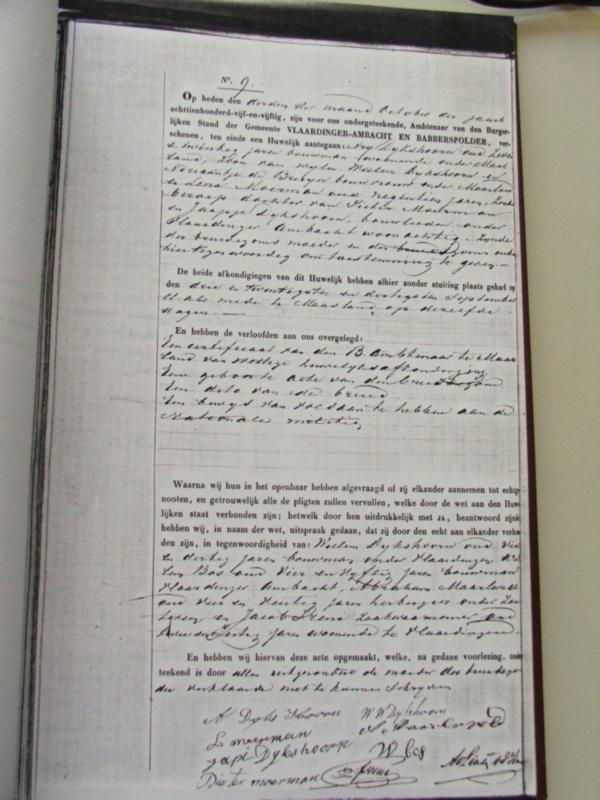 N°. 9.
Op heden den derden der maand October des jaars
achttienhonderd-vijf-en-vijftig, zijn voor ons ondergeteekende, Ambtenaar van den Burger-
lijken Stand der Gemeente VLAARDINGER-AMBACHT EN BABBERSPOLDER, ver-
schenen, ten einde een Huwelijk aantegaan: Ary Dijkshoorn oud zeven
en twintig jaren bouwman wonende onder Maas
land, Zoon van wijlen Willem Dijkshoorn en
de Bruyn bouwvrouw onder Maasland
en Lena Moerman oud negentien jaren, zonder
beroep dochter van Pieter Moerman
en Jaapje Dijkshoorn, bouwlieden onder
Vlaardinger Ambacht woonachtig, zynde
des bruidegoms moeder en der bruids ouders
hier tegenwoordig om toestemming te geven
De beide afkondigingen van dit Huwelijk hebben alhier zonder stuiting plaats gehad op
den drie en twintigsten en dertigsten September
ll. als mede te Maasland op dezelfde
dagen
En hebben de verloofden aan ons overgelegd:
Een certificaat van den B. Ambtenaar te Maas
land van wettige huwelyksafkondiging
Eene geboorte acte van den bruidegom
Een dito van de bruid
Een bewys van voldaan te hebben aan de
Nationale militie
Waarna wij hun in het openbaar hebben afgevraagd of zij elkander aannemen tot echtge-
nooten, en getrouwelijk alle de pligten zullen vervullen, welke door de wet aan den Huwe-
lijken staat verbonden zijn; hetwelk door hen uitdrukkelijk met JA, beantwoord zijnde
hebben wij, in naam der wet, uitspraak gedaan, dat zij door den echt aan elkander verbon-
den zijn, in tegenwoordigheid van: Willem Dijkshoorn oud Vier
en dertig jaren bouwman onder Vlaardingen, Wil
lem Bos oud Vier en Vyftig jaren bouwman
Vlaardinger Ambacht, Abraham Maarleveld
oud Vier en Veertig jaren herbergier onder
en Jacob zaakwaarnemer oud
en Veertig jaren wonende te Vlaardingen
En hebben wij hiervan deze acte opgemaakt, welke, na gedane voorlezing, onder-
teekend is door allen uitgenomen de moeder des bruidegoms
die verklaarde niet te kunnen Schryven
A Dyks Hoorn
W W Dykshoorn
L moerman
A Maarleveld
Jaapi Dykshoorn
W bos
Pieter moerman